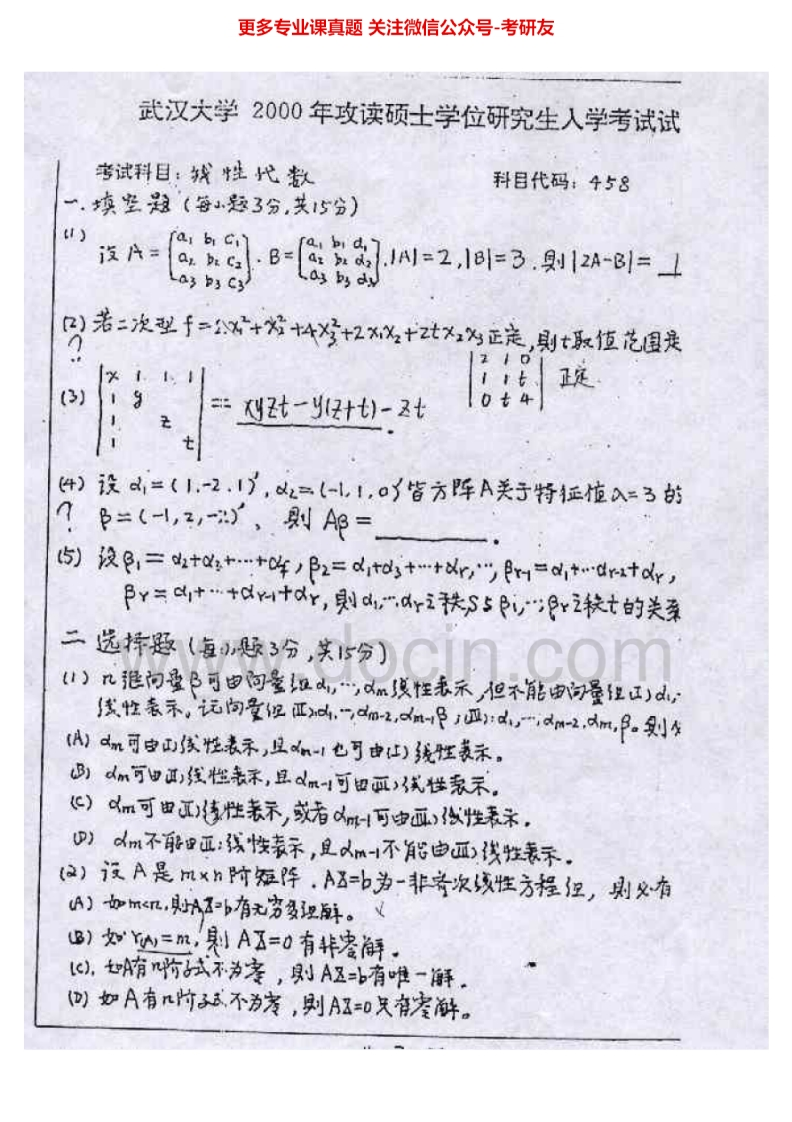 更多专业课真题 关注微信公众号-考研友
武汉大学 2000年攻读硕士学位研究生入学考试试
考试科目：线性代数 科目代码：458
一．填空题（每小题3分，共15分）
(1) 设A=[a₁ b₁ c₁; a₂ b₂ c₂; a₃ b₃ c₃]．B=[a₁ b₁ d₁; a₂ b₂ d₂; a₃ b₃ d₃]，|A|=2，|B|=3．则|2A-B|=
(2) 若二次型f=2x₁²+x₂²+4x₃²+2x₁x₂+2tx₂x₃正定，则t取值范围是
?
|2 1 0; 1 1 t; 0 t 4| 正定
(3) |x 1 1 1; 1 y; 1 z; 1 t| == xyzt-y(z+t)-zt．
(4) 设α₁=(1.-2.1)′，α₂=(-1,1,0)′皆方阵A关于特征值λ=3的
? β=(-1,2,-2)′，则Aβ=________．
(5) 设β₁=α₂+α₃+…+αr，β₂=α₁+α₃+…+αr，…，βr-1=α₁+…αr-2+αr，
βr=α₁+…+αr-1+αr，则α₁，…αr之秩S与β₁，…，βr之秩t的关系
二 选择题（每小题3分，共15分）
www.docin.com
(1) n维向量β可由向量组α₁，…，αm线性表示，但不能由向量组(I)α₁，
线性表示。记向量组(II)：α₁，…，αm-2，αm-1β；(III)：α₁，…，αm-2，αm，β。则
(A) αm可由(I)线性表示，且αm-1也可由(I)线性表示。
(B) αm可由(II)线性表示，且αm-1可由(III)线性表示。
(C) αm可由(II)线性表示，或者αm-1可由(III)线性表示．
(D) αm不能由(II)线性表示，且αm-1不能由(III)线性表示．
(2) 设A是m×n阶矩阵．AX=b为一非齐次线性方程组，则必有
(A) 如m<n，则AX=b有无穷多组解。
(B) 如r(A)=m，则AX=0有非零解．
(C)．如A有n阶子式不为零，则AX=b有唯一解．
(D) 如A有n阶子式不为零，则AX=0只有零解。